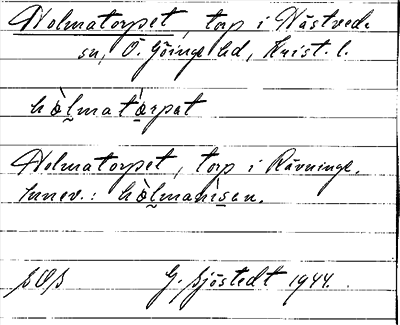 Holmatorpet, torp i Hästveda
sn, Ö. Göinge hd, Krist. l.
hòlmatòrpat
Holmatorpet, torp i Rävninge.
Innev.: hòlmanìsen.
G. Sjöstedt 1944.